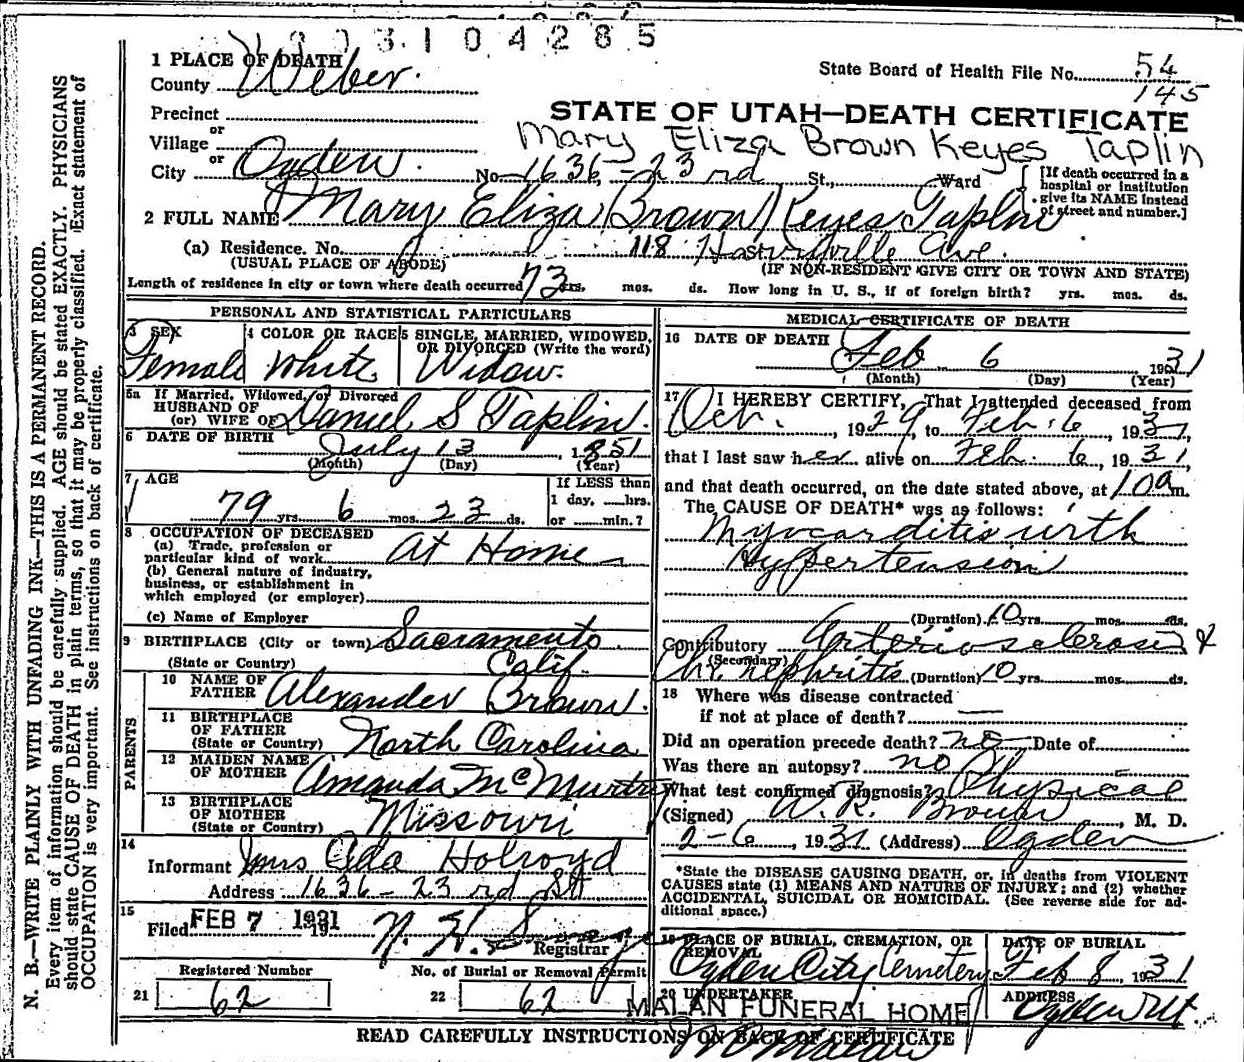 1931 04285
1 PLACE OF DEATH
County Weber.
State Board of Health File No. 54
145
Precinct
or
Village
or
City Ogden.
STATE OF UTAH—DEATH CERTIFICATE
Mary Eliza Brown Keyes Taplin
No. 1636, -23rd St., Ward
[If death occurred in a hospital or institution give its NAME instead of street and number.]
2 FULL NAME Mary Eliza Brown Keyes Taplin
(a) Residence. No. 118 Harrisville Ave.
(USUAL PLACE OF ABODE)
(IF NON-RESIDENT GIVE CITY OR TOWN AND STATE)
Length of residence in city or town where death occurred 73 yrs. mos. ds. How long in U. S., if of foreign birth? yrs. mos. ds.
PERSONAL AND STATISTICAL PARTICULARS
3 SEX
Female
4 COLOR OR RACE
White
5 SINGLE, MARRIED, WIDOWED, OR DIVORCED (Write the word)
Widow.
5a If Married, Widowed, or Divorced
HUSBAND OF
(or) WIFE OF Daniel S Taplin.
6 DATE OF BIRTH
July 13, 1851
(Month) (Day) (Year)
7 AGE
79 yrs 6 mos. 23 ds.
If LESS than
1 day, ......hrs.
or ......min.?
8 OCCUPATION OF DECEASED
(a) Trade, profession or
particular kind of work At Home
(b) General nature of industry,
business, or establishment in
which employed (or employer)
(c) Name of Employer
9 BIRTHPLACE (City or town) Sacramento.
(State or Country) Calif.
PARENTS
10 NAME OF FATHER Alexander Brown.
11 BIRTHPLACE OF FATHER (State or Country) North Carolina
12 MAIDEN NAME OF MOTHER Amanda McMurtry
13 BIRTHPLACE OF MOTHER (State or Country) Missouri
14
Informant Mrs Ada Holroyd
Address 1636-23rd St
15
Filed FEB 7 1931 19
Registrar
21 Registered Number 62
22 No. of Burial or Removal Permit 62
MEDICAL CERTIFICATE OF DEATH
16 DATE OF DEATH
Feb 6 1931
(Month) (Day) (Year)
17 I HEREBY CERTIFY, That I attended deceased from
Oct., 1929, to Feb. 6, 1931,
that I last saw her alive on Feb. 6, 1931,
and that death occurred, on the date stated above, at 10 a m.
The CAUSE OF DEATH* was as follows:
Myocarditis with
Hypertension
(Duration) 10 yrs. mos. ds.
Contributory Arteriosclerosis &
(Secondary) Chr. nephritis (Duration) 10 yrs. mos. ds.
18 Where was disease contracted
if not at place of death?
Did an operation precede death? no Date of
Was there an autopsy? no
What test confirmed diagnosis? Physical
(Signed) W. R. Brown, M. D.
2-6, 1931 (Address) Ogden
*State the DISEASE CAUSING DEATH, or, in deaths from VIOLENT
CAUSES state (1) MEANS AND NATURE OF INJURY; and (2) whether
ACCIDENTAL, SUICIDAL OR HOMICIDAL. (See reverse side for ad-
ditional space.)
19 PLACE OF BURIAL, CREMATION, OR REMOVAL
Ogden City Cemetery
DATE OF BURIAL
Feb 8, 1931
20 UNDERTAKER
MALAN FUNERAL HOME
ADDRESS
Ogden Ut
READ CAREFULLY INSTRUCTIONS ON BACK OF CERTIFICATE
N. B.—WRITE PLAINLY WITH UNFADING INK—THIS IS A PERMANENT RECORD.
Every item of information should be carefully supplied. AGE should be stated EXACTLY. PHYSICIANS
should state CAUSE OF DEATH in plain terms, so that it may be properly classified. Exact statement of
OCCUPATION is very important. See instructions on back of certificate.